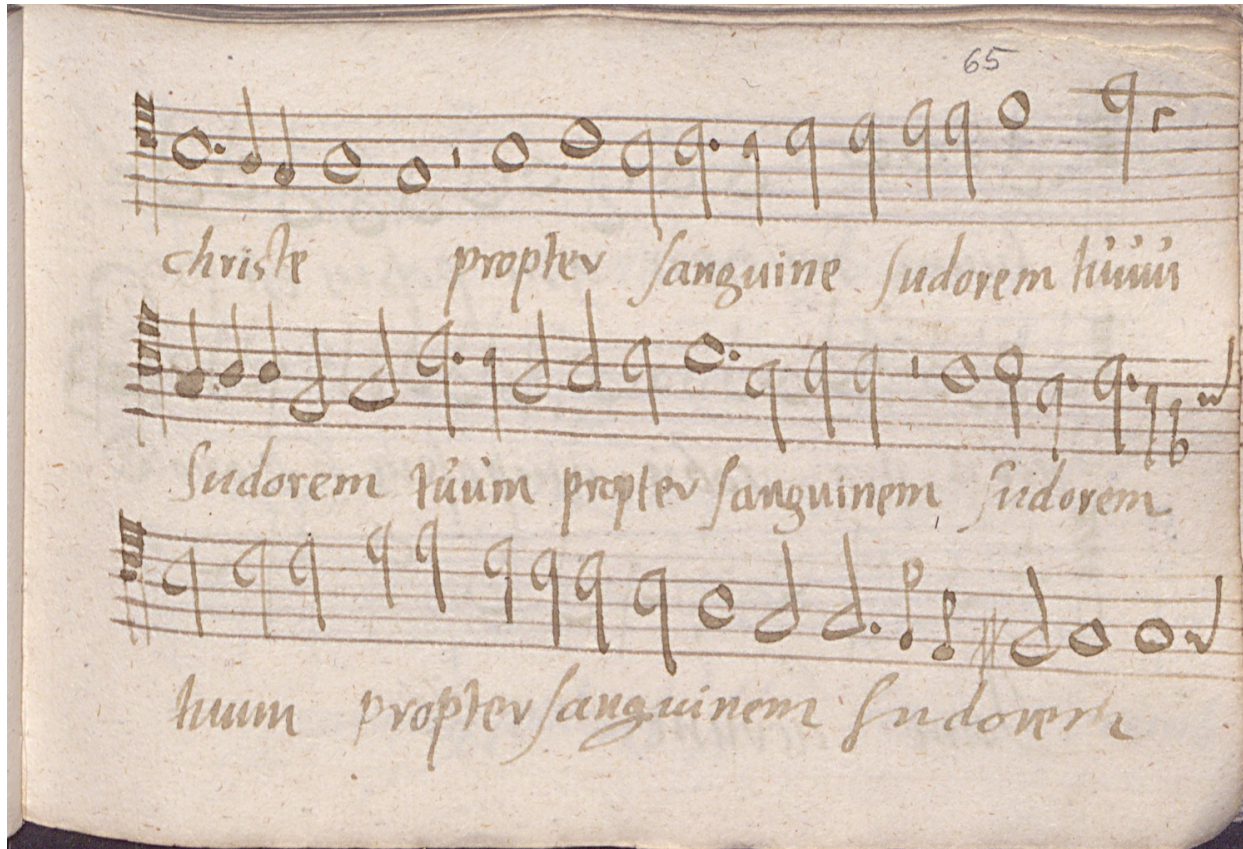 65
christe propter sanguine sudorem tuum
Sudorem tuum propter sanguinem Sudorem
tuum propter sanguinem Sudorem